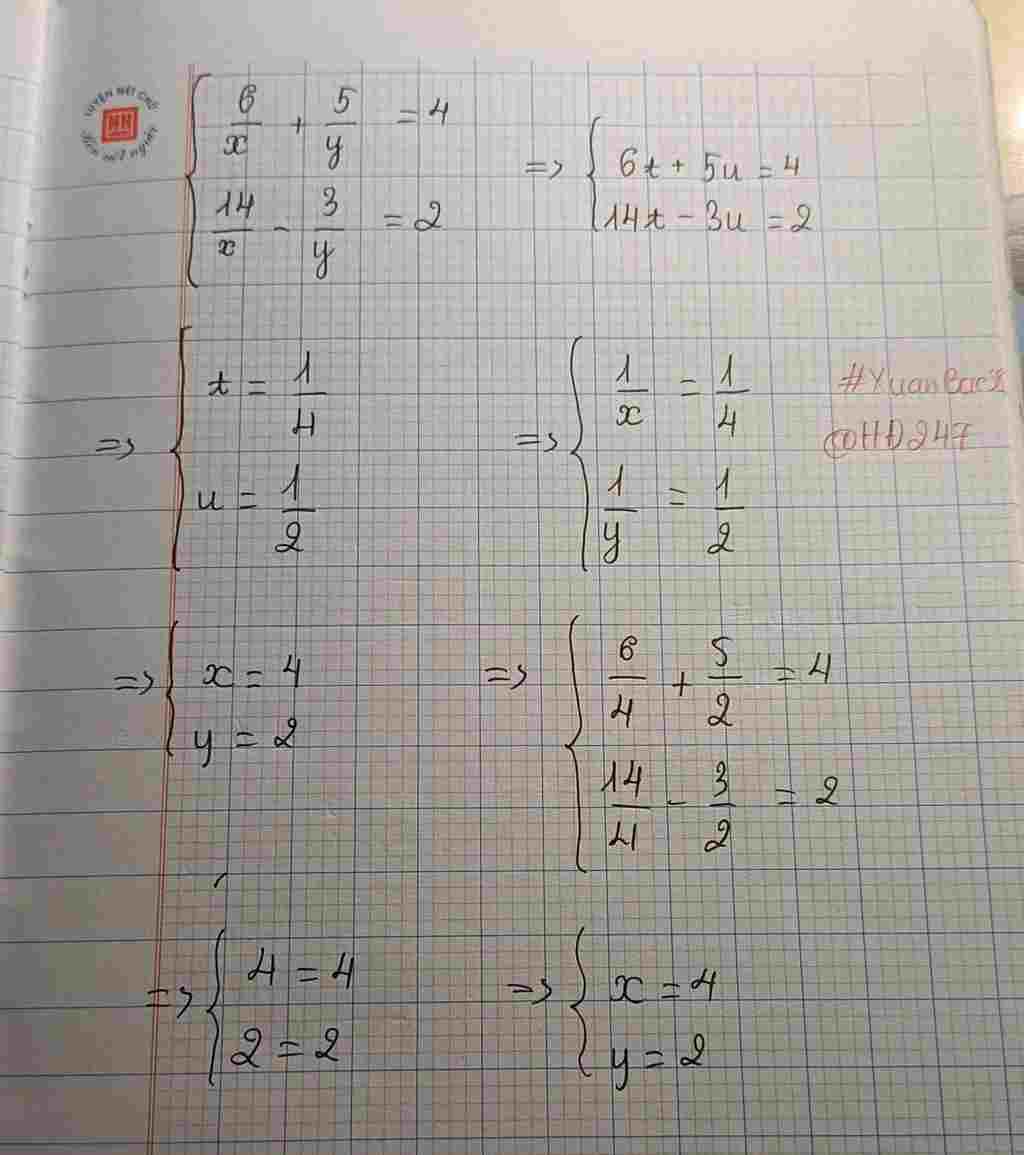 LUYỆN NÉT CHỮ
NN
Rèn nết người
{ 6/x + 5/y = 4
{ 14/x - 3/y = 2
=> { 6t + 5u = 4
{ 14t - 3u = 2
=> { t = 1/4
{ u = 1/2
=> { 1/x = 1/4
{ 1/y = 1/2
#YuanBack
@HĐ247
=> { x = 4
{ y = 2
=> { 6/4 + 5/2 = 4
{ 14/4 - 3/2 = 2
=> { 4 = 4
{ 2 = 2
=> { x = 4
{ y = 2